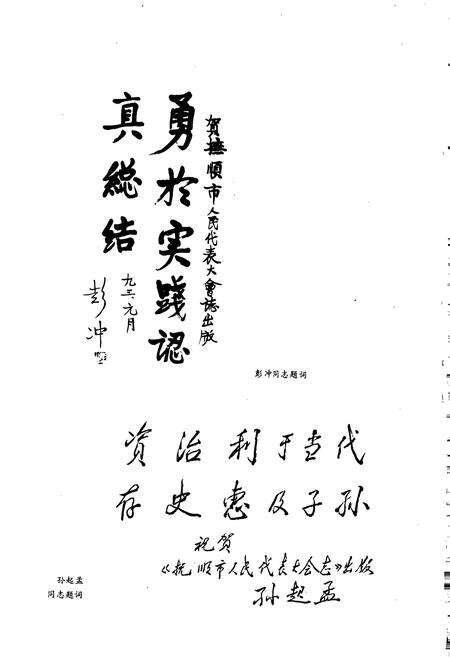 贺撫順市人民代表大會誌出版
勇於实践認
真總结
九三.元月
彭冲
彭冲同志题词
资治利于当代
存史惠及子孙
祝贺
《抚顺市人民代表大会志》出版
孙起孟
孙起孟
同志题词